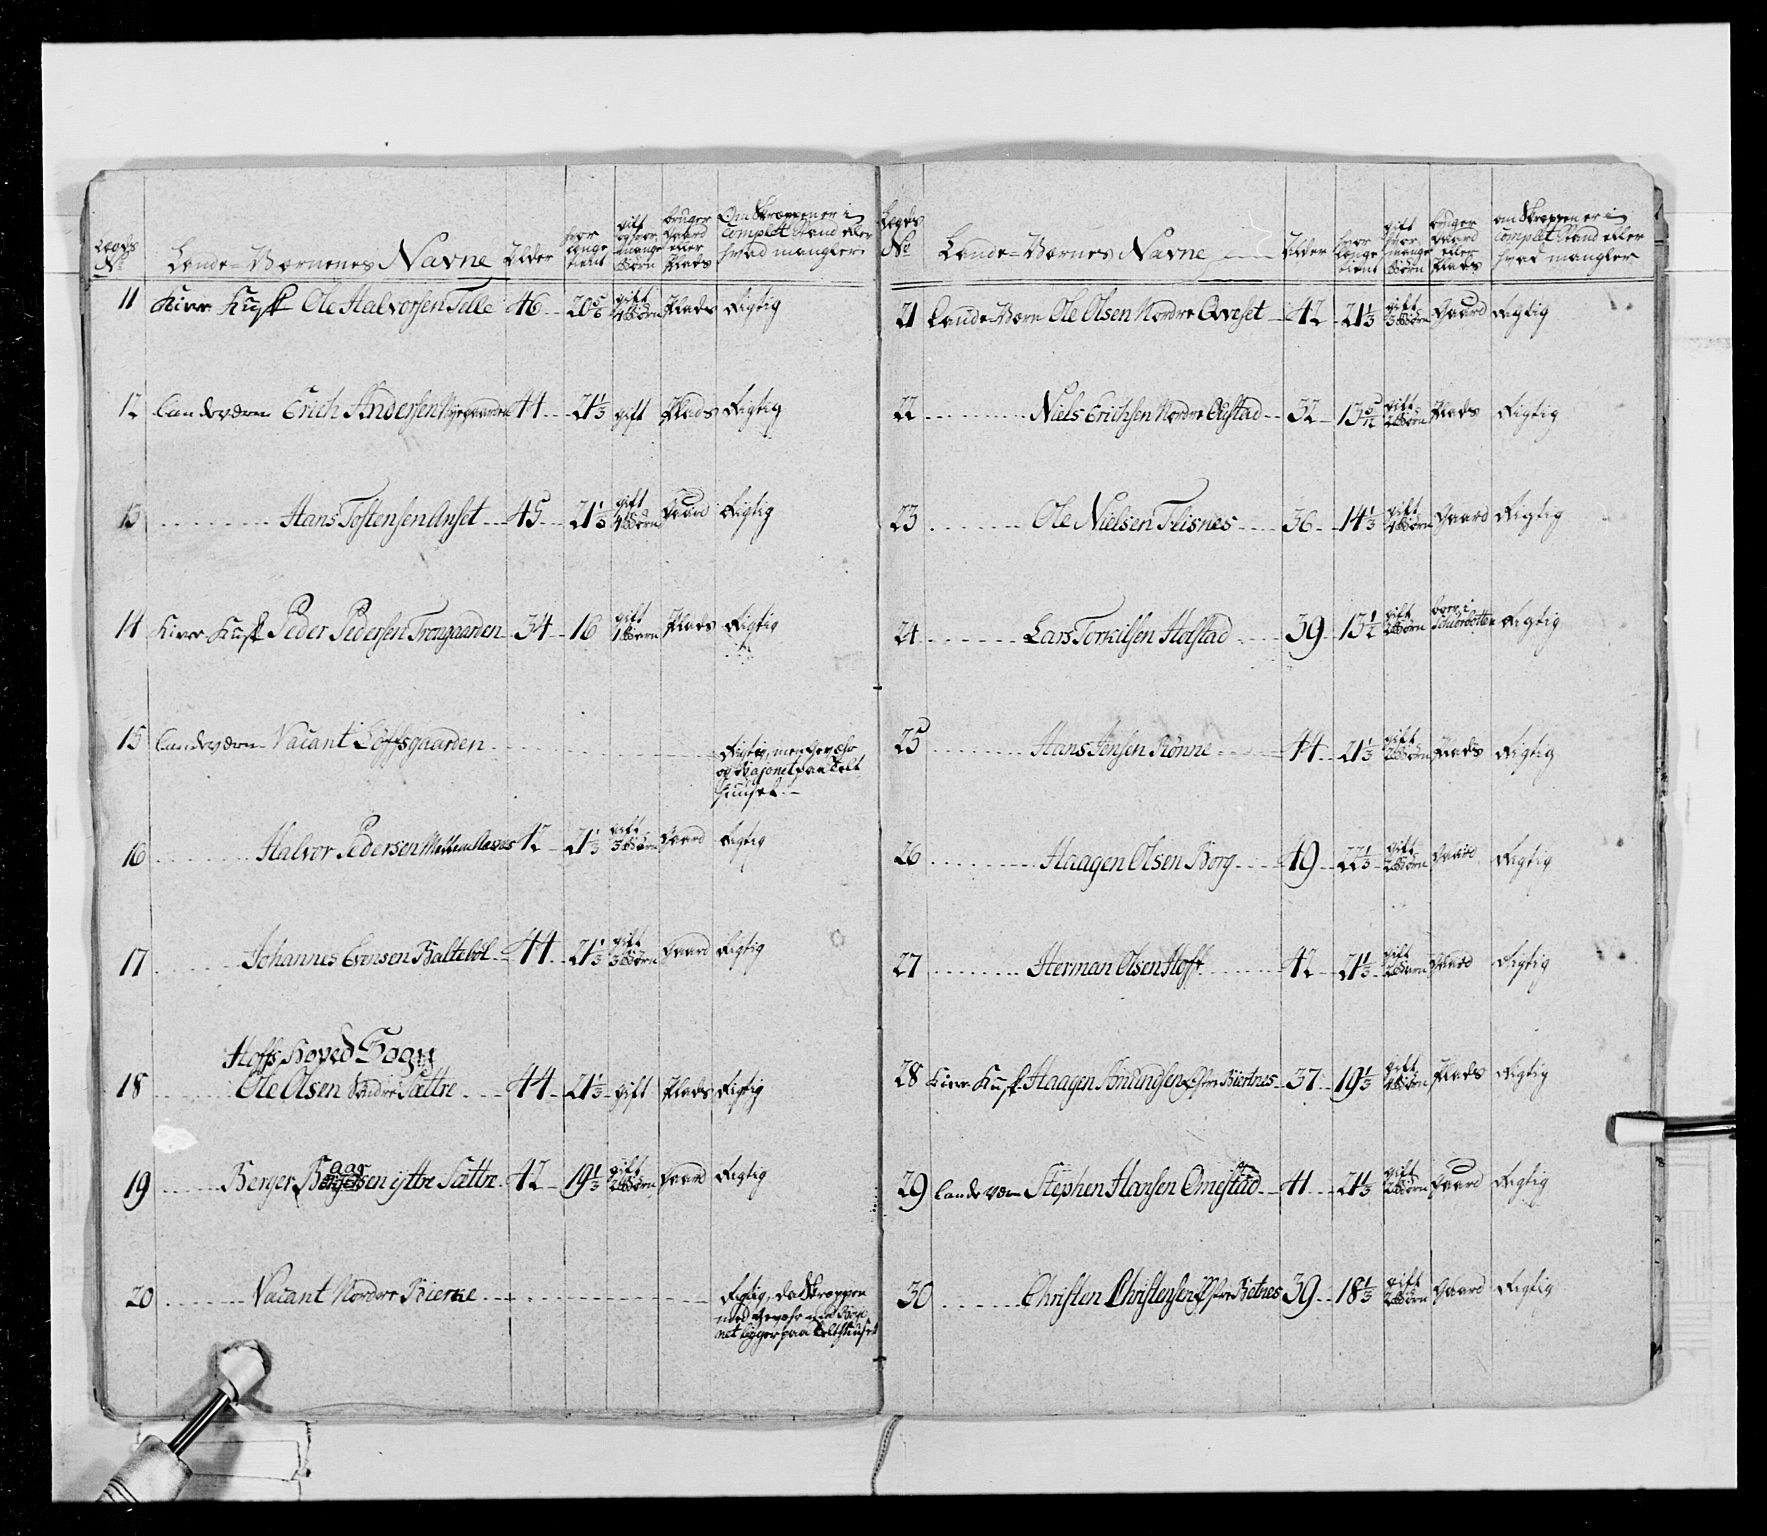 Legds No Lande-Værnenes Navne Alder hvor længe tient gift og hvor mange Børn bruger Gaard eller Plads Om Skræppen er i Complet Stand eller hvad mangler
11 Kusk Ole Halvorsen Tille 46 20 5/6 gift 4 Børn Plads Rigtig
12 Landeværn Erich Andersen 44 21 1/3 gift Plads Rigtig
13 Hans Tostensen Anset 45 21 1/3 gift 4 Børn Gaard Rigtig
14 Kusk Peder Pedersen Trongaarden 34 16 gift 1 Børn Plads Rigtig
15 Landeværn Vacant Löffsgaarden Rigtig, men Gevæhr
og Bajonet paa Telt
huuset
16 Halvor Pedersen 42 21 1/3 gift 3 Børn Gaard Rigtig
17 Johannes Evensen Balteböl 44 21 1/3 gift 3 Børn Gaard Rigtig
Hoffs Hoved Sogn
18 Ole Olsen Søndre Sættre 44 21 1/3 gift Plads Rigtig
19 Berger Haagensen istre Sættre 42 19 1/3 gift 2 Børn Gaard Rigtig
20 Vacant Nordre Bierke Rigtig, da Skræppen
med Gevæhr og Bajo
net ligger paa Telthuuset
Legds No Lande-Værnes Navne Alder hvor længe tient gift hvor mange Børn bruger Gaard eller Plads om Skræppen er i Complet Stand eller hvad mangler
21 Lande-Værn Ole Olsen Nordre Qveset 42 21 1/3 gift 3 Børn Gaard Rigtig
22 Niels Erichsen Nordre 32 13 5/12 gift 2 Børn Plads Rigtig
23 Ole Nielsen Flisnes 36 14 1/3 gift 4 Børn Gaard Rigtig
24 Lars Torkilsen Holstad 39 13 1/2 gift 2 Børn boer i Rigtig
25 Hans Jensen Rönne 44 21 1/3 gift 2 Børn Plads Rigtig
26 Haagen Olsen Borg 49 22 1/3 gift 2 Børn Gaard Rigtig
27 Herman Olsen Hoff 42 21 1/3 gift 2 Børn Gaard Rigtig
28 Kusk Haagen Amundsen Østre Biertnes 37 19 1/3 gift 4 Børn Plads Rigtig
29 Landeværn Stephen Hansen Omestad 41 21 1/3 gift 2 Børn Gaard Rigtig
30 Christen Christensen Østre Bietnes 39 18 1/3 gift 2 Børn Gaard Rigtig